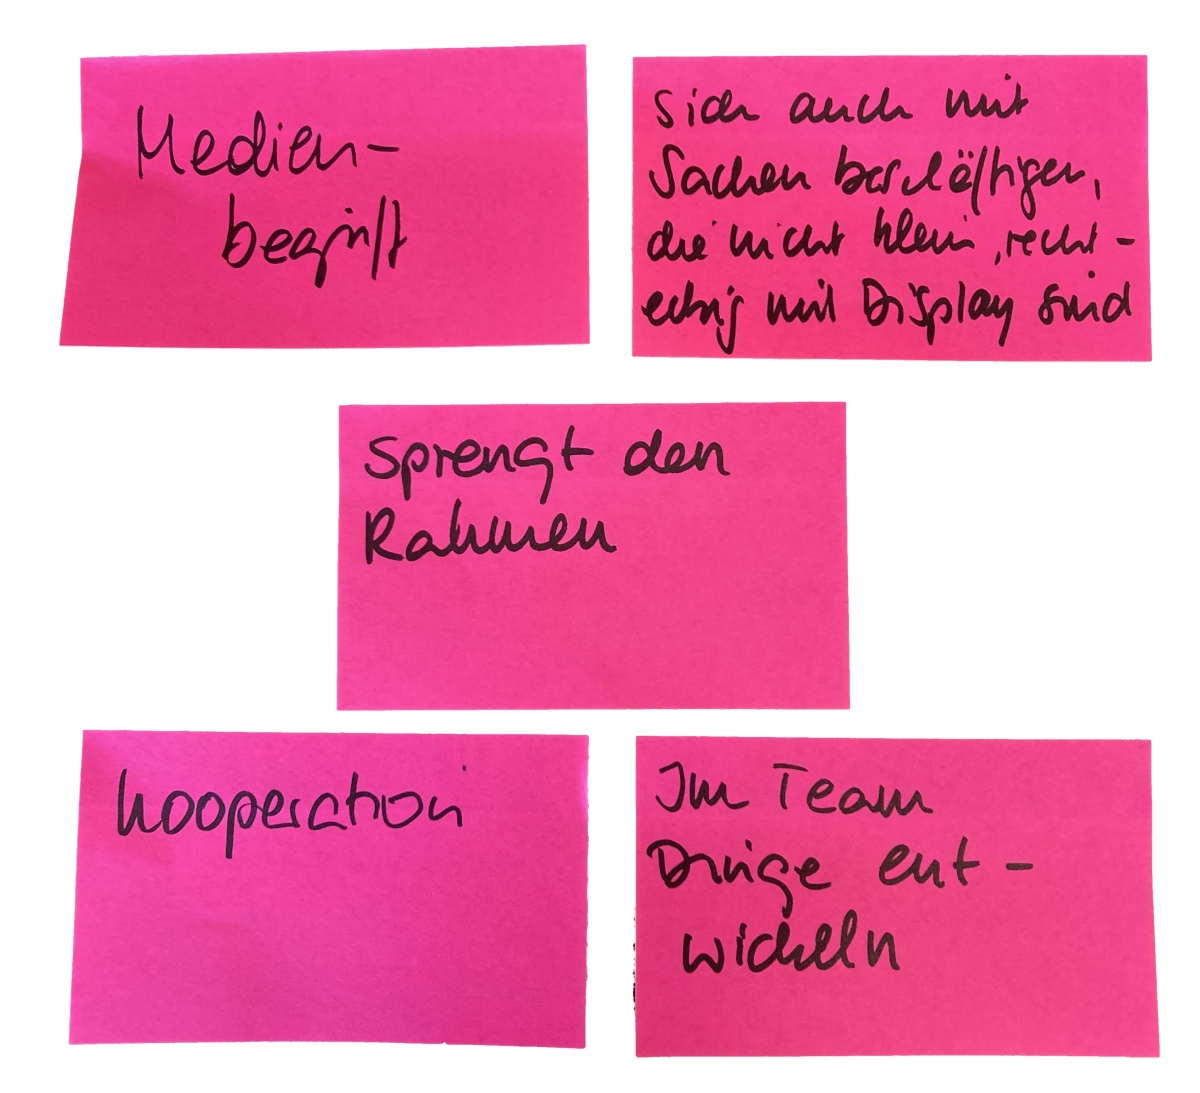 Medien-
begriff
Sich auch mit
Sachen beschäftigen,
die nicht klein, recht-
eckig mit Display sind
Sprengt den
Rahmen
Kooperation
Im Team
Dinge ent-
wickeln